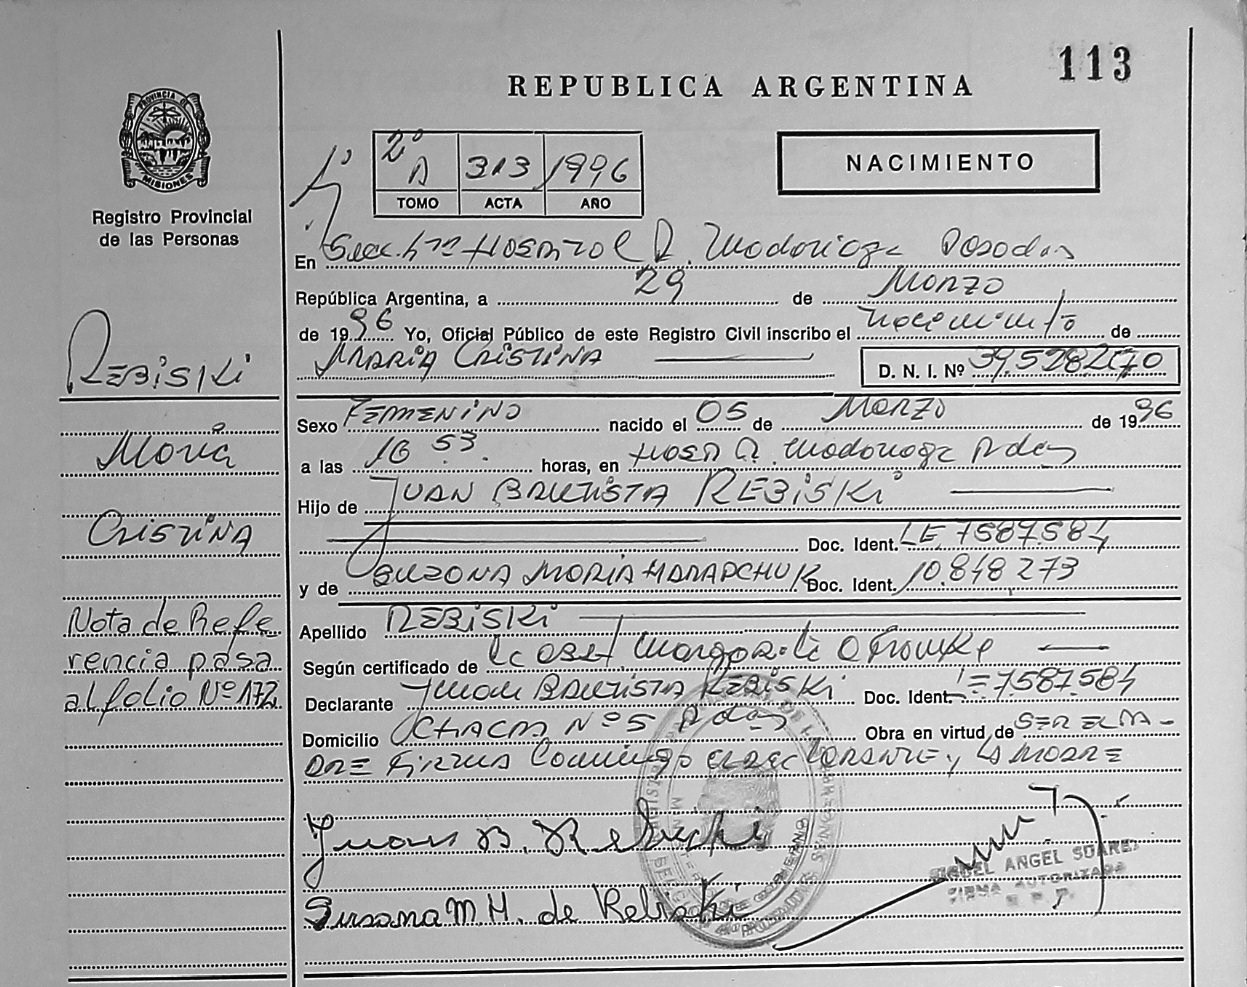 113
REPUBLICA ARGENTINA
PROVINCIA DE MISIONES
Registro Provincial
de las Personas
NACIMIENTO
2º A 313 1996
TOMO ACTA AÑO
En Secc. 1ra Hospital R. Madariaga Posadas
República Argentina, a 29 de Marzo
de 1996 Yo, Oficial Público de este Registro Civil inscribo el nacimiento de
MARIA CRISTINA
D. N. I. Nº 39.528.270
Sexo FEMENINO nacido el 05 de Marzo de 1996
a las 16 53 horas, en Hosp R. Madariaga Pdas
Hijo de JUAN BAUTISTA REBISKI
Doc. Ident. LE 7587.584
y de SUZANA MARIA HARAPCHUK Doc. Ident. 10.848.273
Apellido REBISKI
Según certificado de la Obst. Margarita
Declarante Juan BAUTISTA REBISKI Doc. Ident. LE 7587.584
Domicilio CHACRA Nº 5 Pdas Obra en virtud de SER EL PA-
DRE FIRMA Conmigo EL DECLARANTE y LA MADRE
Juan B. Rebiski
Susana M. H. de Rebiski
MIGUEL ANGEL SUAREZ
FIRMA AUTORIZADA
R. P. P.
REBISKI
María
CRISTINA
Nota de Refe
rencia pasa
al folio Nº 172